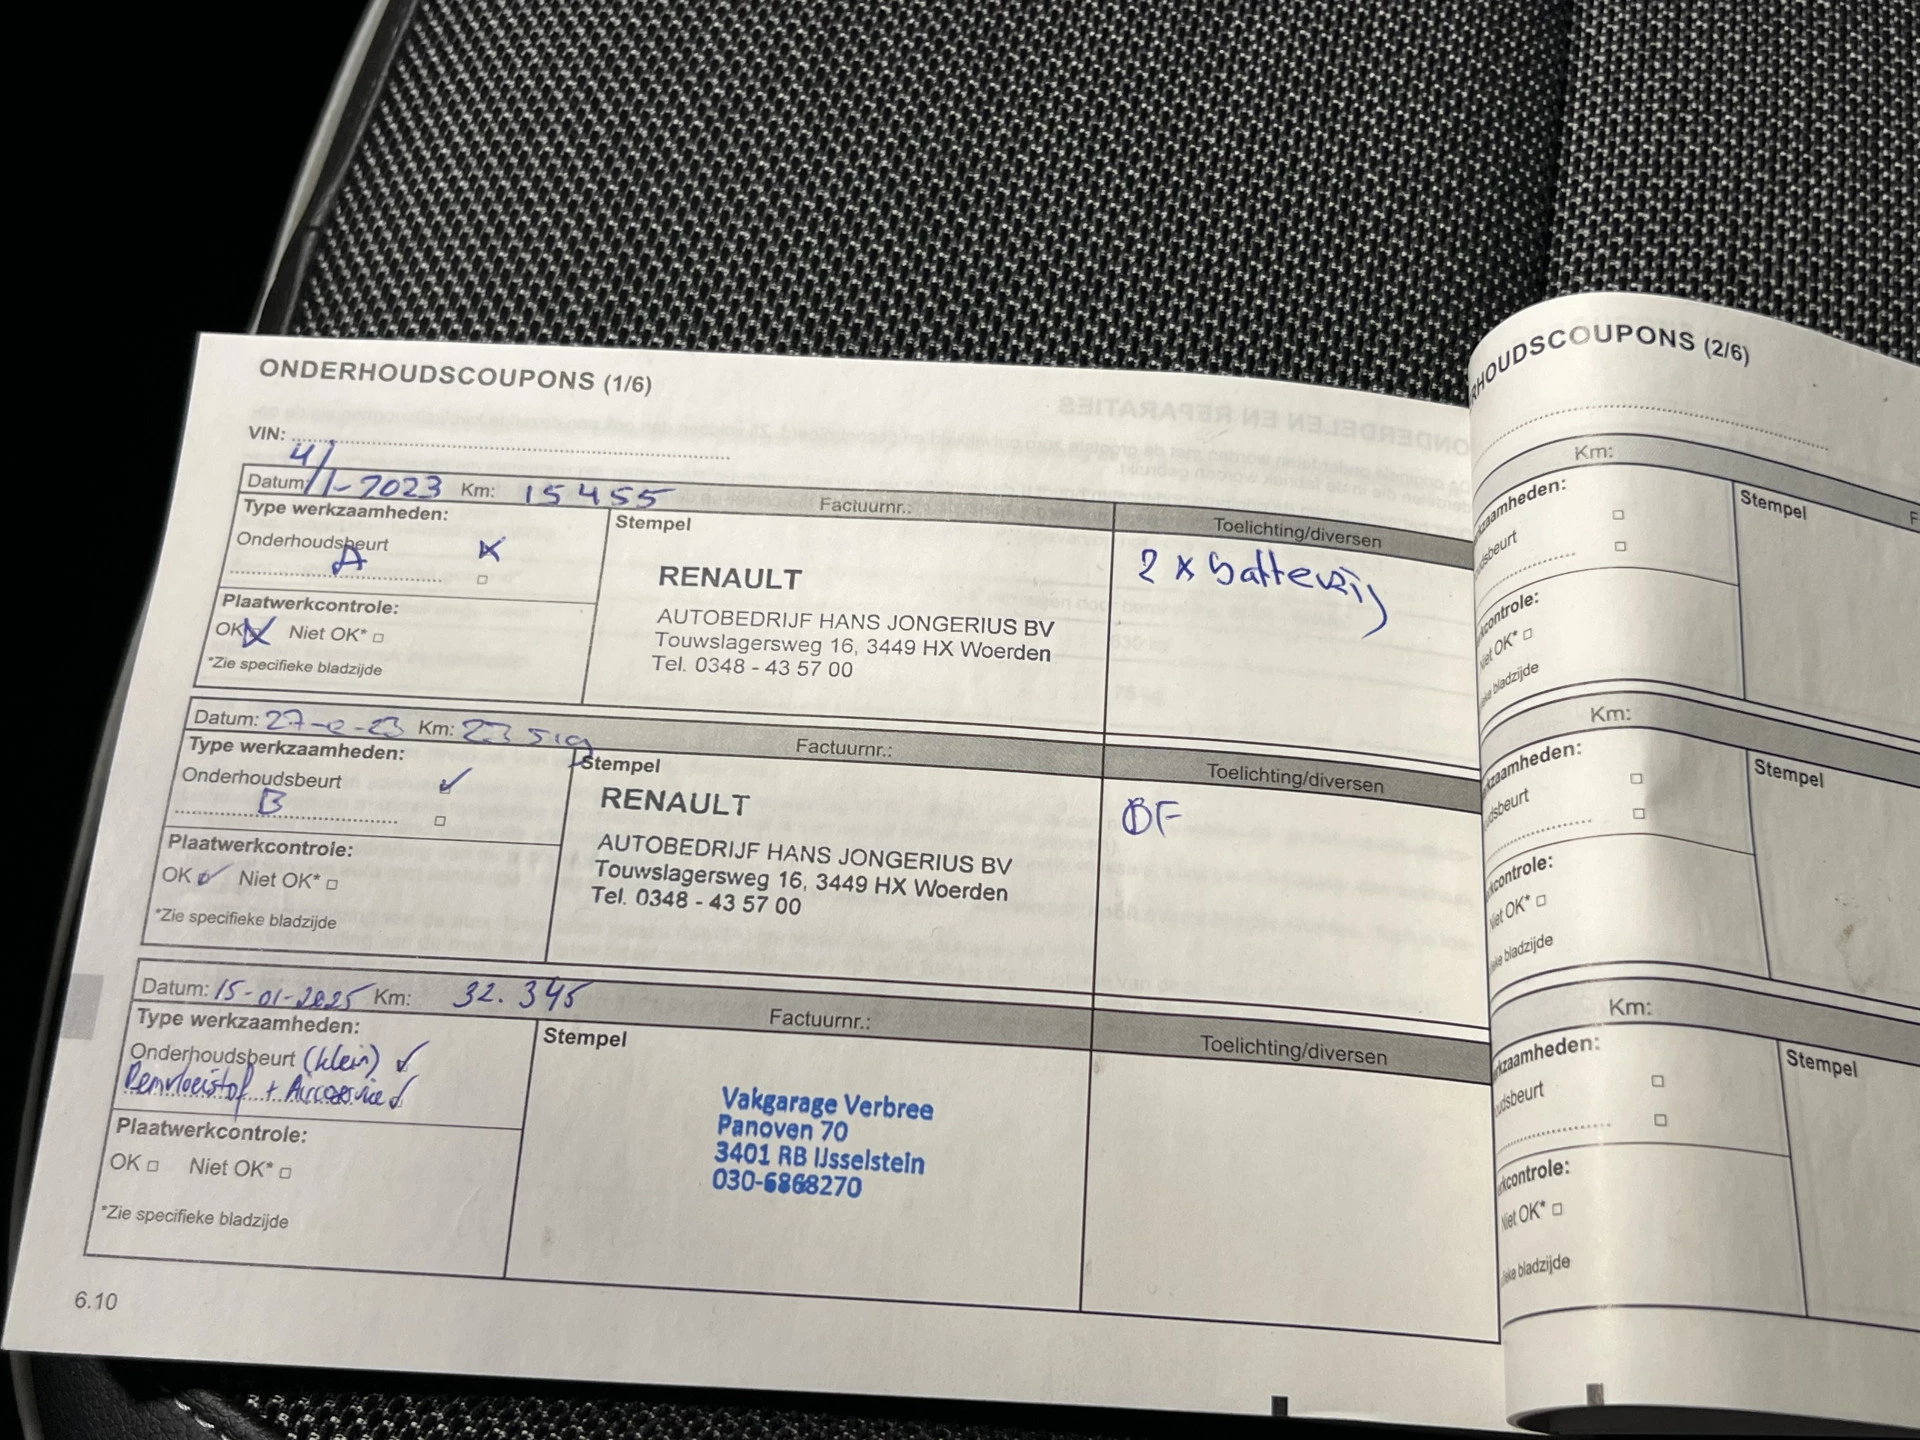 ONDERHOUDSCOUPONS (1/6)
VIN:
Datum: 4/1-2023 Km: 15455 Factuurnr.: Toelichting/diversen
Type werkzaamheden:
Onderhoudsbeurt
A
Plaatwerkcontrole:
OK Niet OK*
*Zie specifieke bladzijde
Stempel
RENAULT
AUTOBEDRIJF HANS JONGERIUS BV
Touwslagersweg 16, 3449 HX Woerden
Tel. 0348 - 43 57 00
2 x batterij
Datum: Km: Factuurnr.: Toelichting/diversen
Type werkzaamheden:
Onderhoudsbeurt
B
Plaatwerkcontrole:
OK Niet OK*
*Zie specifieke bladzijde
Stempel
RENAULT
AUTOBEDRIJF HANS JONGERIUS BV
Touwslagersweg 16, 3449 HX Woerden
Tel. 0348 - 43 57 00
BF
Datum: 15-01-2025 Km: 32.345 Factuurnr.: Toelichting/diversen
Type werkzaamheden:
Onderhoudsbeurt (klein)
Remvloeistof + Aircoservice
Plaatwerkcontrole:
OK Niet OK*
*Zie specifieke bladzijde
Stempel
Vakgarage Verbree
Panoven 70
3401 RB IJsselstein
030-6868270
6.10
RHOUDSCOUPONS (2/6)
Km:
kzaamheden:
dsbeurt
kcontrole:
Niet OK*
bladzijde
Stempel
Km:
kzaamheden:
udsbeurt
kcontrole:
Niet OK*
ieke bladzijde
Stempel
Km:
kzaamheden:
oudsbeurt
kcontrole:
Niet OK*
ieke bladzijde
Stempel